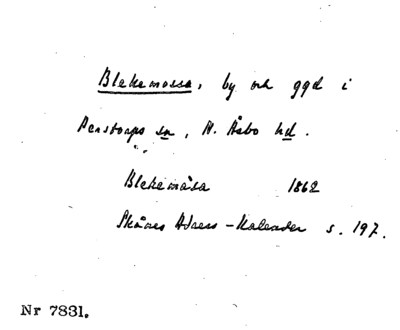 Blekemossa, by och ggd i
Perstorps sn, N. Åsbo hd.
Blekemåsa 1862
Skånes Adress-Kalender s. 197.
Nr 7831.